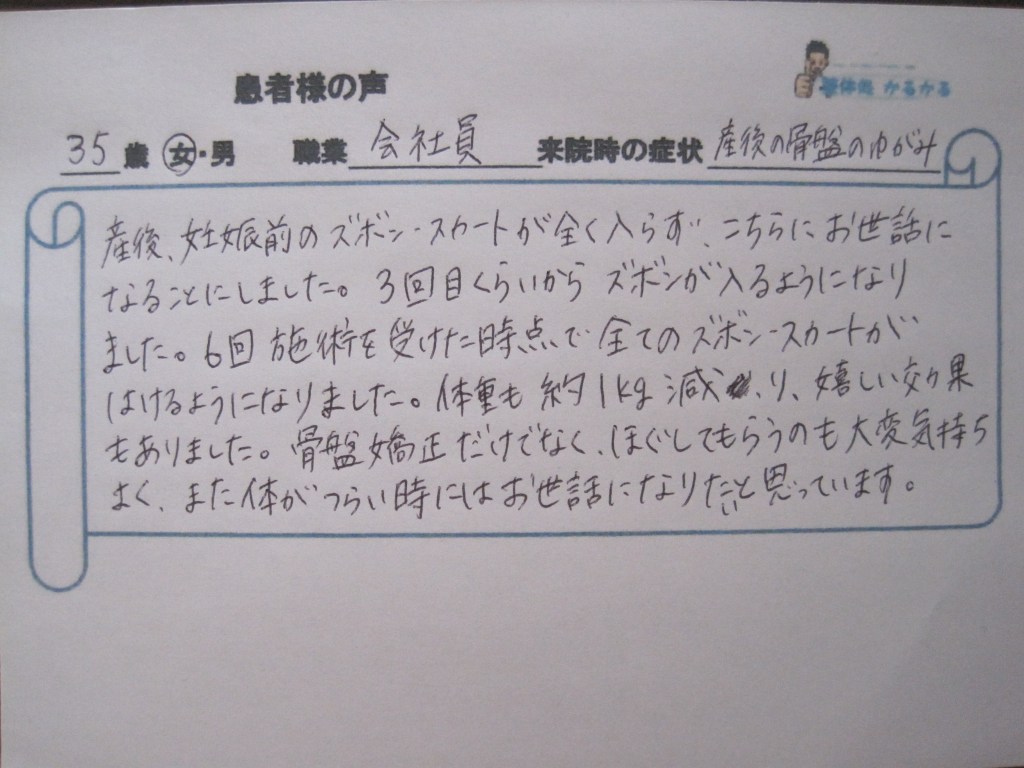 患者様の声
整体処 かるかる
35歳 女・男 職業 会社員 来院時の症状 産後の骨盤のゆがみ
産後、妊娠前のズボン・スカートが全く入らず、こちらにお世話に
なることにしました。3回目くらいからズボンが入るようになり
ました。6回施術を受けた時点で全てのズボン・スカートが
はけるようになりました。体重も約1kg減り、嬉しい効果
もありました。骨盤矯正だけでなく、ほぐしてもらうのも大変気持ち
よく、また体がつらい時にはお世話になりたいと思っています。